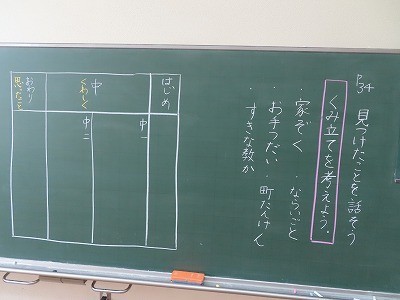 P34 見つけたことを話そう
くみ立てを考えよう。
・家ぞく ・ならいごと
・お手つだい ・町たんけん
・すきな教か
はじめ
中
くわしく
中一
中二
おわり
思ったこと